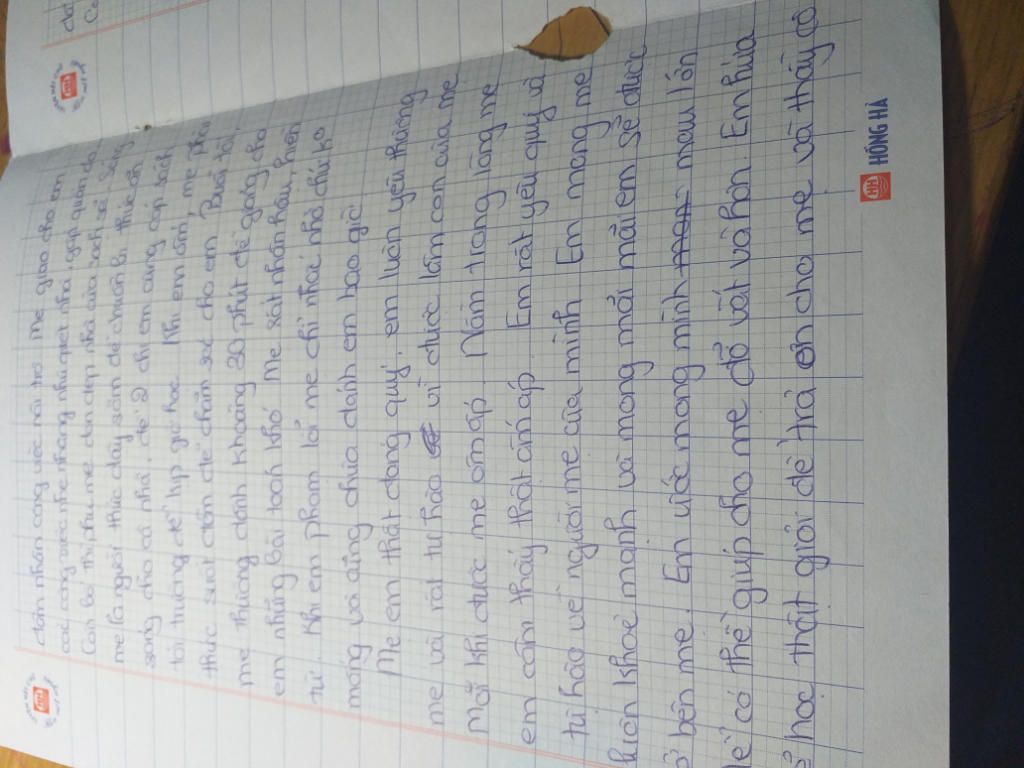 đảm nhận công việc nội trợ. Mẹ giao cho em
các công việc nhẹ nhàng như quét nhà, gấp quần áo
Còn bố thì phụ mẹ dọn dẹp nhà cửa sạch sẽ. Sáng
mẹ là người thức dậy sớm để chuẩn bị thức ăn
sáng cho cả nhà, để 2 chị em em cùng cắp sách
tới trường để kịp giờ học. Khi em ốm, mẹ phải
thức suốt đêm để chăm sóc cho em. Buổi tối,
mẹ thường dành khoảng 20 phút để giảng cho
em những bài toán khó. Mẹ rất nhân hậu, hiền
từ. Khi em phạm lỗi mẹ chỉ nhắc nhở chứ ko
mắng và cũng chưa đánh em bao giờ
Mẹ em thật đáng quý, em luôn yêu thương
mẹ và rất tự hào vì được làm con của mẹ
Mỗi khi được mẹ ôm ấp. Nằm trong lòng mẹ
em cảm thấy thật ấm áp. Em rất yêu quý và
tự hào về người mẹ của mình. Em mong mẹ
luôn khoẻ mạnh và mong mỏi mãi em sẽ được
ở bên mẹ. Em ước mong mình mau lớn
để có thể giúp cho mẹ đỡ vất vả hơn. Em hứa
sẽ học thật giỏi để trả ơn cho mẹ và thầy cô
HỒNG HÀ